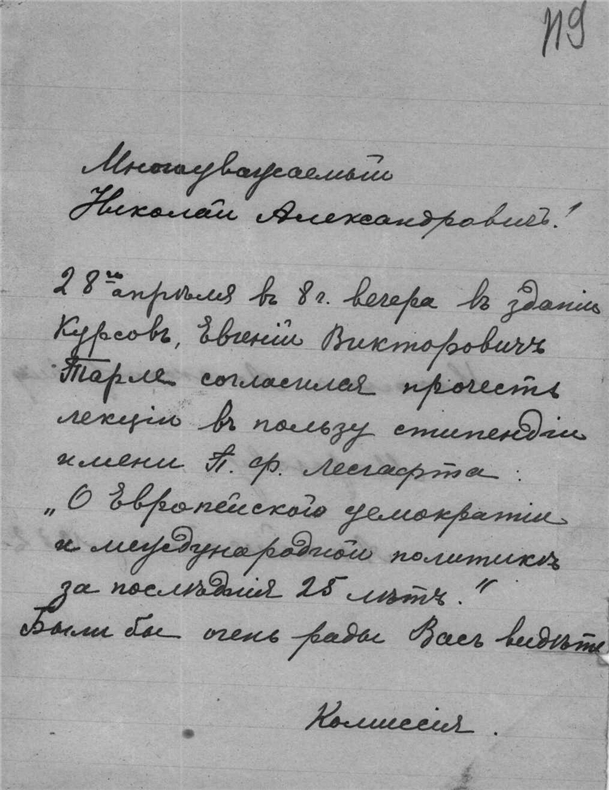 119
Многоуважаемый
Николай Александровичъ!
28го апрѣля въ 8 г. вечера въ зданіи
Курсовъ, Евгеній Викторовичъ
Тарле согласился прочесть
лекцію въ пользу стипендіи
имени П. Ф. Лесгафта:
„О Европейского демократіи
и международной политикѣ
за послѣднія 25 лѣтъ."
Были бы очень рады Васъ видѣть
Комиссія.